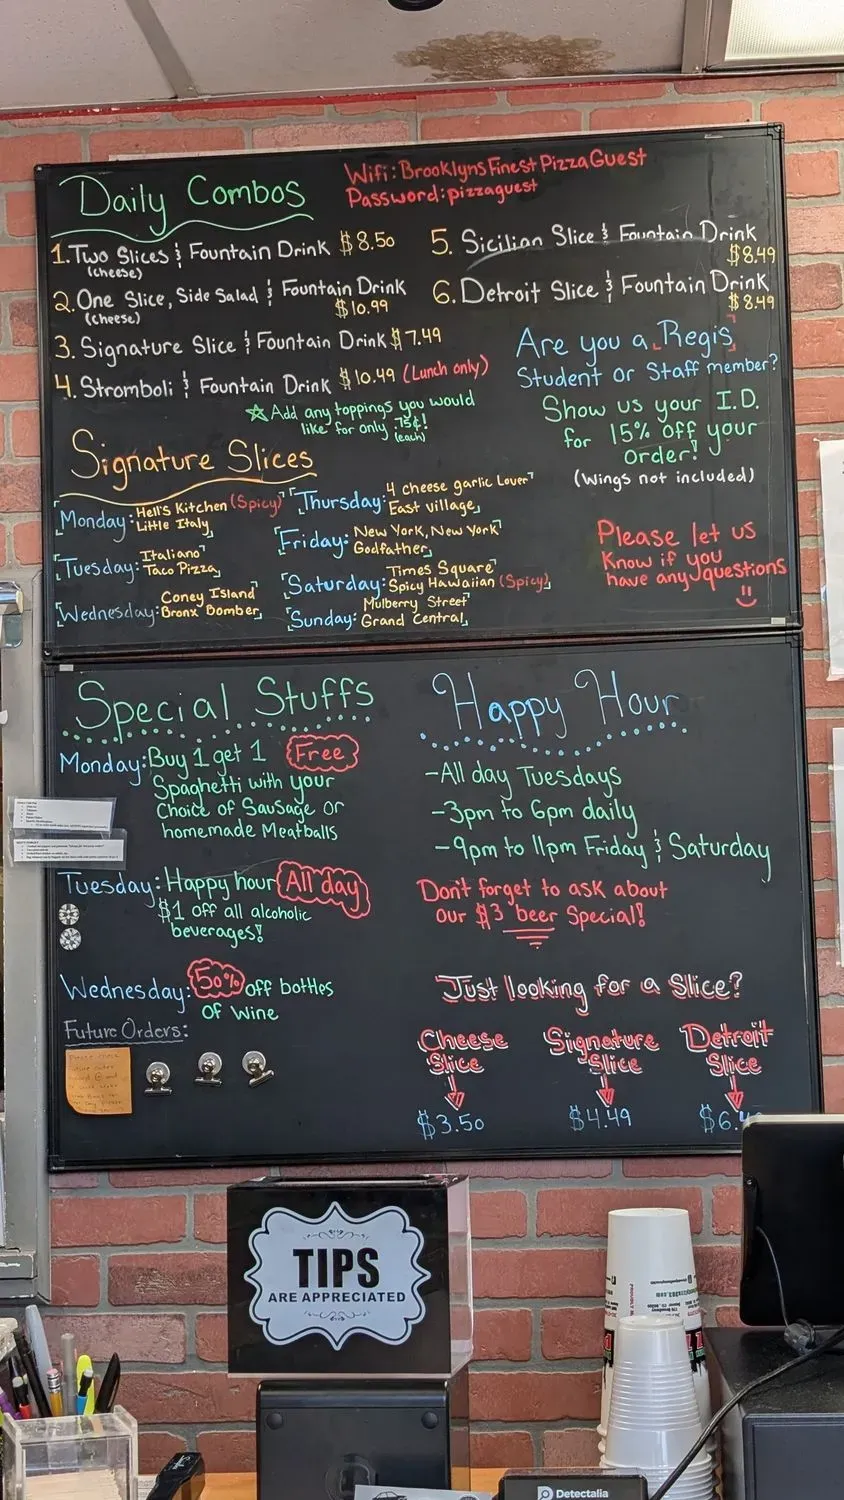 Wifi: BrooklynsFinestPizzaGuest
Password: pizzaguest
Daily Combos
1. Two Slices & Fountain Drink $8.50
(cheese)
2. One Slice, Side Salad & Fountain Drink
(cheese) $10.99
3. Signature Slice & Fountain Drink $7.49
4. Stromboli & Fountain Drink $10.49 (Lunch only)
☆ Add any toppings you would
like for only .75¢!
(each)
5. Sicilian Slice & Fountain Drink
$8.49
6. Detroit Slice & Fountain Drink
$8.49
Are you a Regis
Student or Staff member?
Show us your I.D.
for 15% off your
order!
(Wings not included)
Please let us
Know if you
have any questions
Signature Slices
Monday: Hell's Kitchen (Spicy)
Little Italy
Tuesday: Italiano
Taco Pizza
Wednesday: Coney Island
Bronx Bomber
Thursday: 4 cheese garlic Lover
East village
Friday: New York, New York
Godfather
Saturday: Times Square
Spicy Hawaiian (Spicy)
Sunday: Mulberry Street
Grand Central
Special Stuffs
Monday: Buy 1 get 1 Free
Spaghetti with your
Choice of Sausage or
homemade Meatballs
Tuesday: Happy hour All day
$1 off all alcoholic
beverages!
Wednesday: 50% off bottles
of Wine
Future Orders:
Happy Hour
-All day Tuesdays
-3pm to 6pm daily
-9pm to 11pm Friday & Saturday
Don't forget to ask about
our $3 beer Special!
Just looking for a Slice?
Cheese
Slice
$3.50
Signature
Slice
$4.49
Detroit
Slice
$6.
TIPS
ARE APPRECIATED
Detectalia